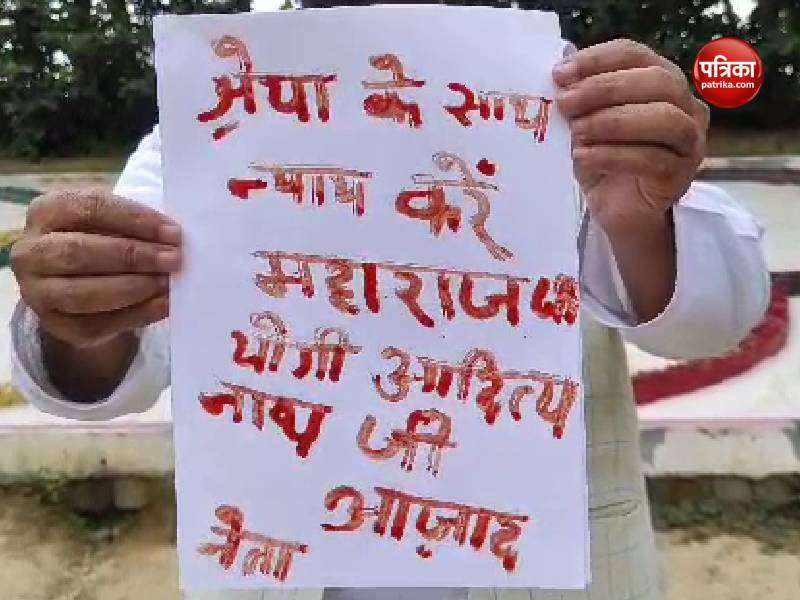 श्रेया के साथ
न्याय करें
महाराज जी
योगी आदित्य
नाथ जी
आज़ाद
नेता
पत्रिका
patrika.com